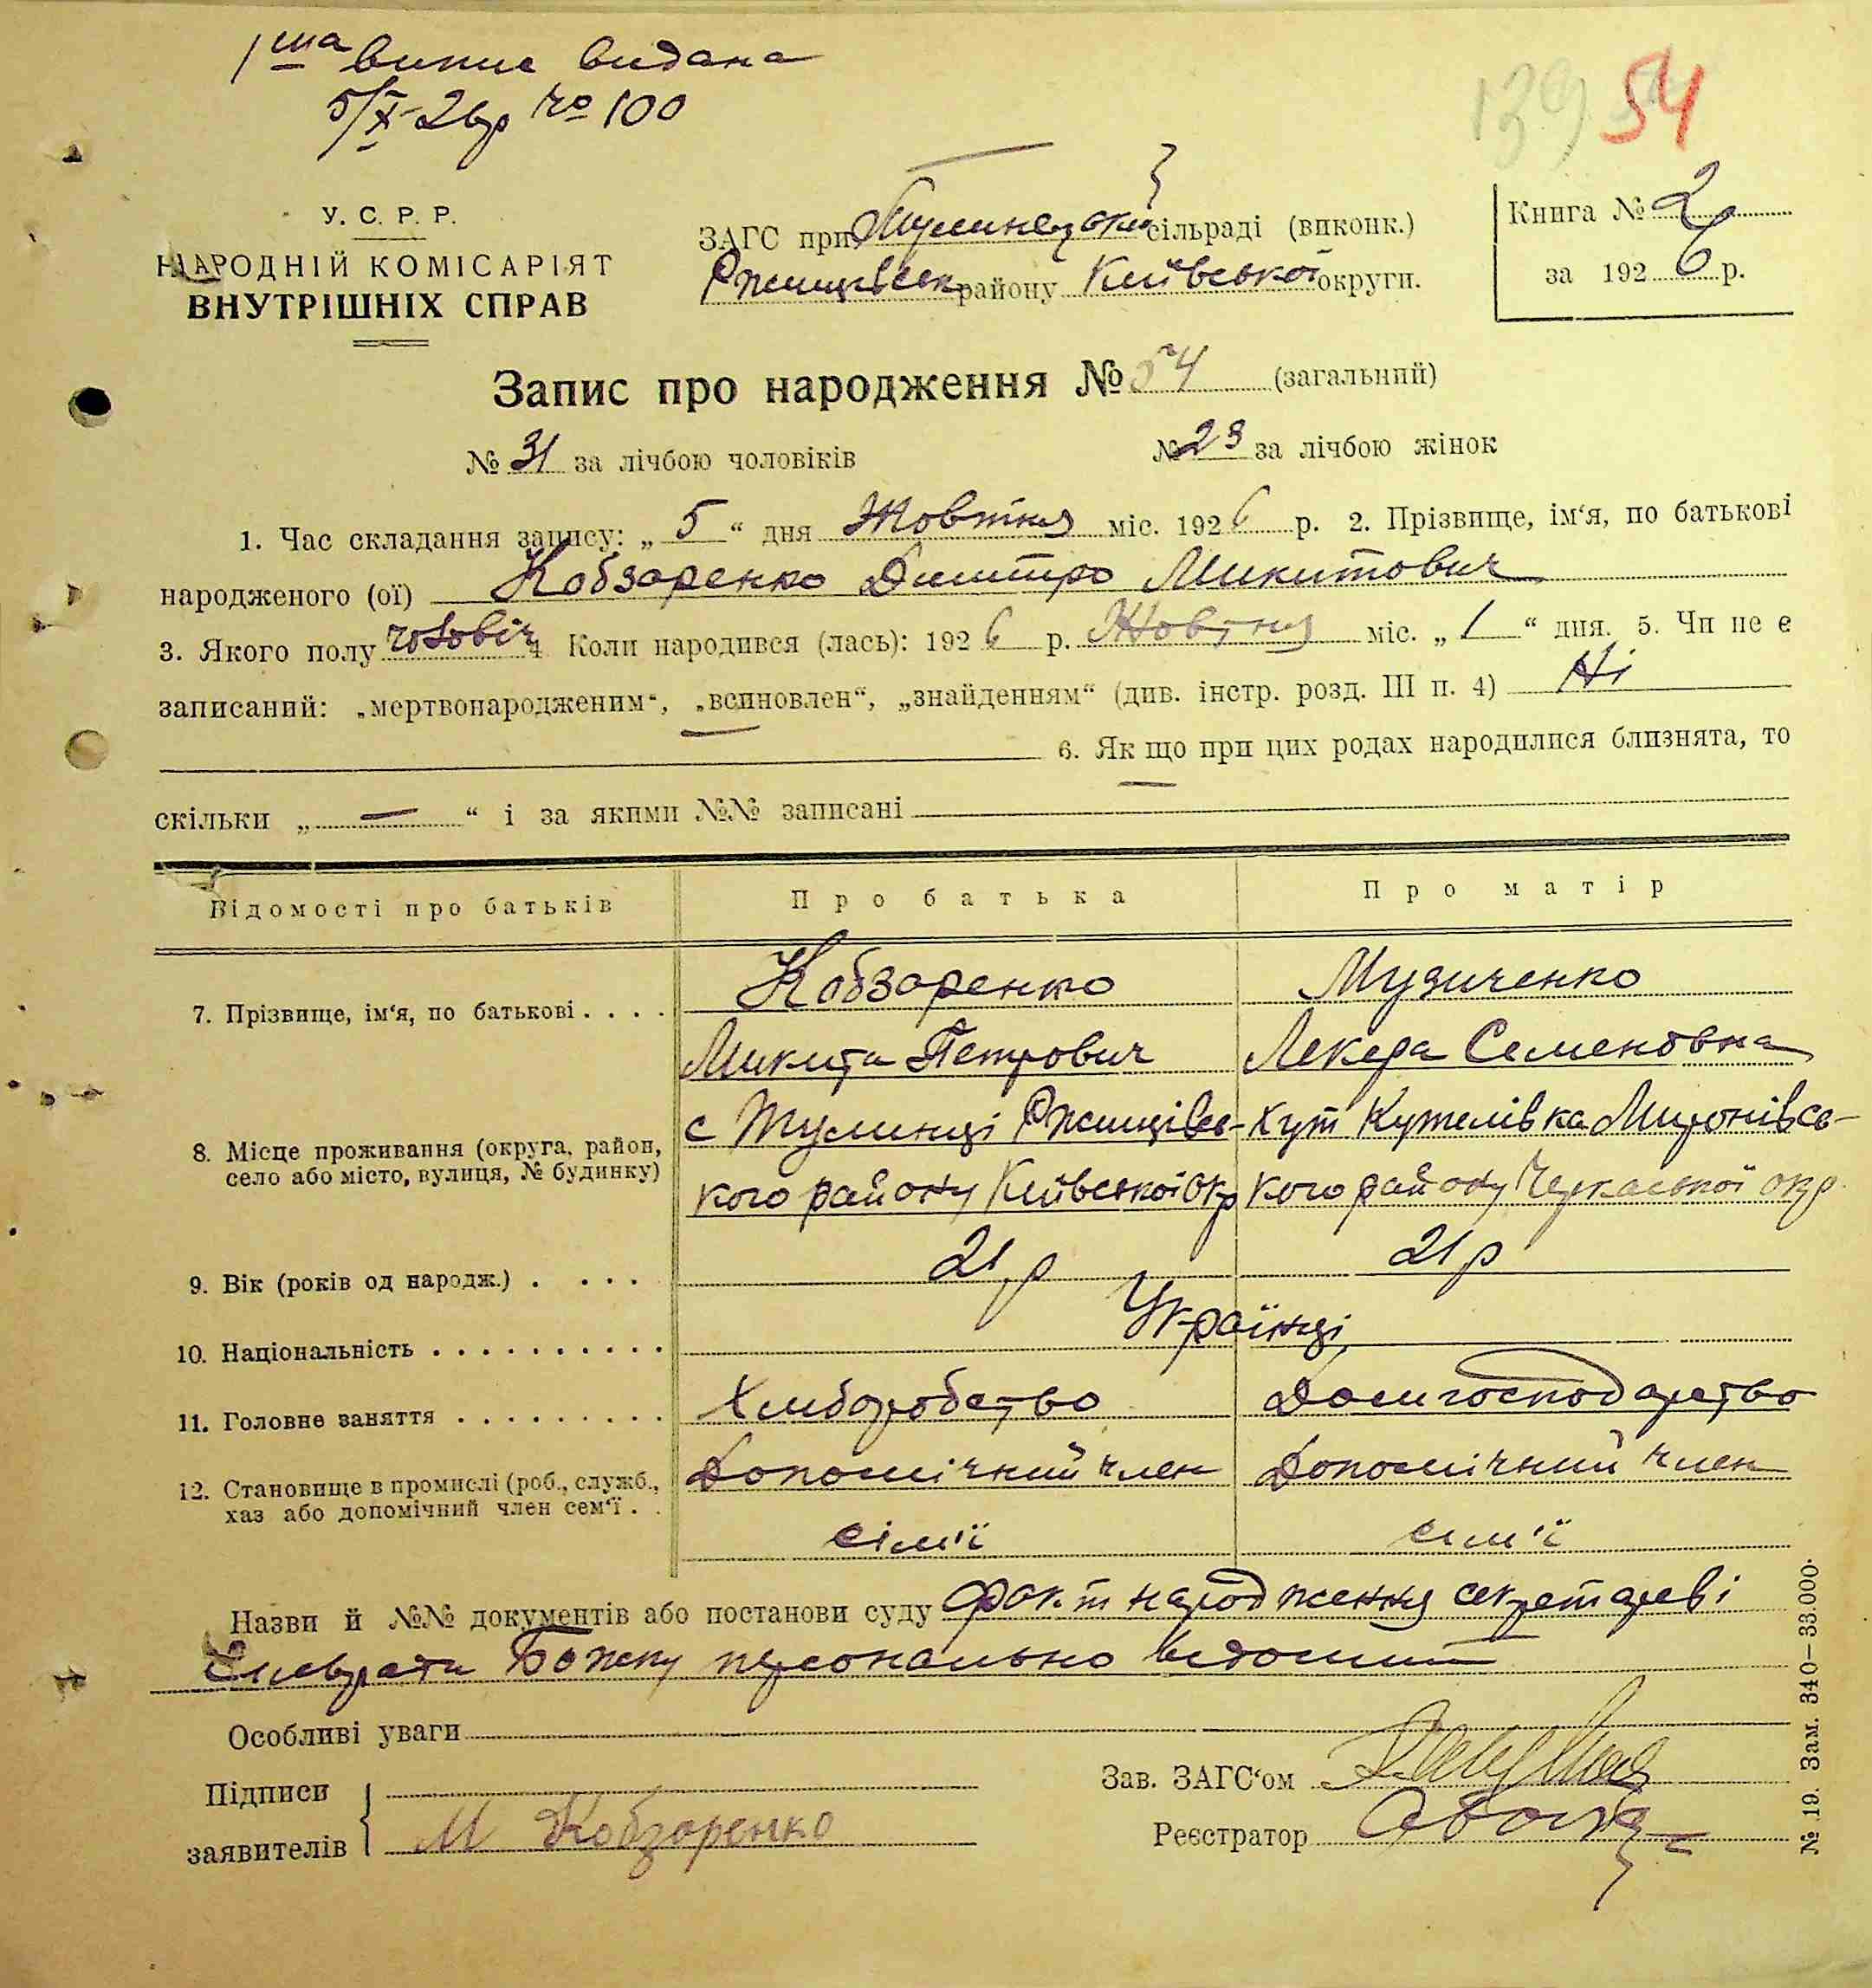 1ша випис видана
5/X-26р № 100
139 54
У. С. Р. Р.
НАРОДНІЙ КОМІСАРІЯТ
ВНУТРІШНІХ СПРАВ
ЗАГС при Тулинецькій сільраді (виконк.)
Ржищівськ району Київської округи.
Книга № 2
за 1926 р.
Запис про народження № 54 (загальний)
№ 31 за лічбою чоловіків № 23 за лічбою жінок
1. Час складання запису: „ 5 “ дня Жовтня міс. 1926 р. 2. Прізвище, ім‘я, по батькові
народженого (ої) Кобзаренко Дмитро Микитович
3. Якого полу чоловіч 4 Коли народився (лась): 1926 р. Жовтня міс. „ 1 “ дня. 5. Чи не є
записаний: „мертвонародженим“, „всиновлен“, „знайденням“ (див. інстр. розд. III п. 4) Ні
6. Як що при цих родах народилися близнята, то
скільки „ — “ і за якими №№ записані
Відомості про батьків Про батька Про матір
7. Прізвище, ім‘я, по батькові . . . . Кобзаренко Музиченко
Микита Петрович Лекера Семеновна
8. Місце проживання (округа, район, село або місто, вулиця, № будинку) с Тулинці Ржищівсь- хут Кутелівка Миронівсь-
кого району Київської окр кого району Черкаської окр
9. Вік (років од народж.) . . . . 21 р 21 р
10. Національність . . . . . . . . . . Українці
11. Головне заняття . . . . . . . . . Хліборобство Домгосподарство
12. Становище в промислі (роб., служб., хаз або допомічний член сем‘ї . . Допомічний член Допомічний член
сім'ї сім'ї
Назви й №№ документів або постанови суду Факт народження секретареві
сільради Божку персонально відомий
Особливі уваги
Підписи
заявителів М Кобзаренко
Зав. ЗАГС‘ом
Реєстратор
№ 19. Зам. 340—33.000.